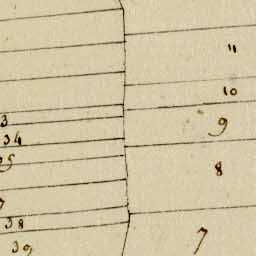 11
10
3
9
34
35
8
7
38
7
39